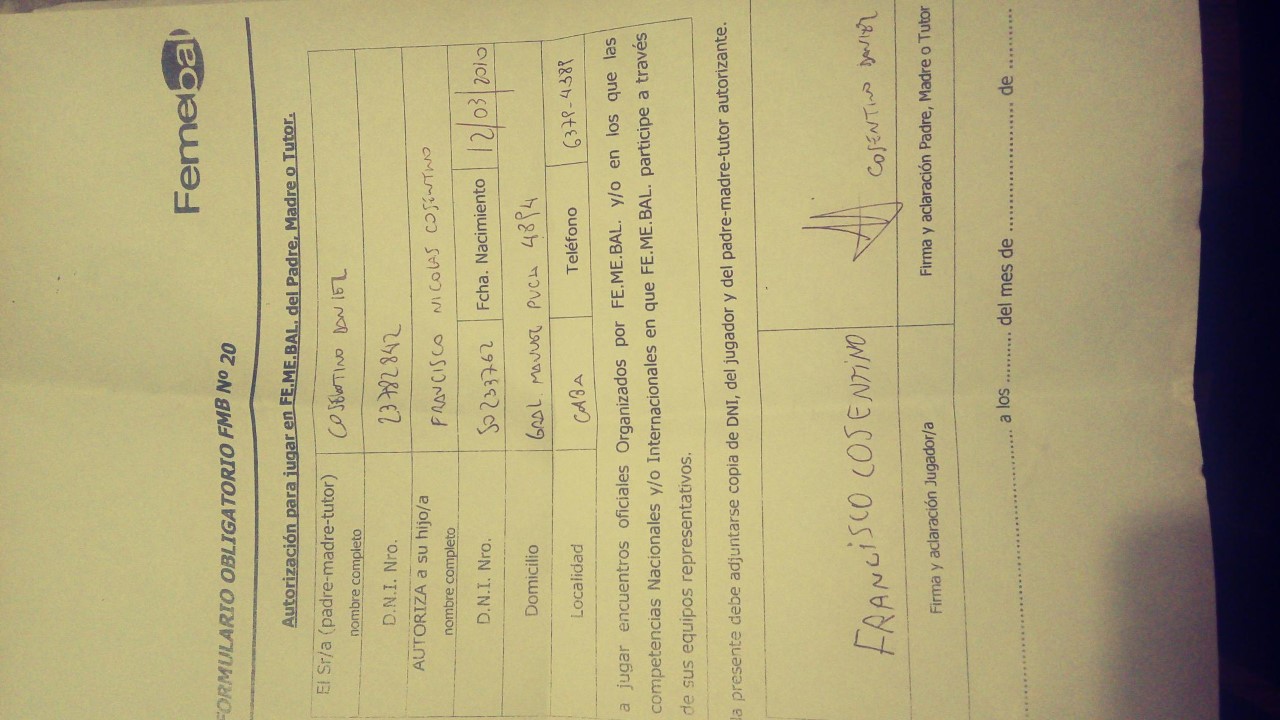 Femebal
FORMULARIO OBLIGATORIO FMB Nº 20
Autorización para jugar en FE.ME.BAL. del Padre, Madre o Tutor.
El Sr/a (padre-madre-tutor) nombre completo COSENTINO DANIEL
D.N.I. Nro. 23782842
AUTORIZA a su hijo/a nombre completo FRANCISCO NICOLAS COSENTINO
D.N.I. Nro. 50233762 Fcha. Nacimiento 12/03/2010
Domicilio GRAL MANUEL 4894
Localidad CABA Teléfono 6379-4389
a jugar encuentros oficiales Organizados por FE.ME.BAL. y/o en los que las
competencias Nacionales y/o Internacionales en que FE.ME.BAL. participe a través
de sus equipos representativos.
la presente debe adjuntarse copia de DNI, del jugador y del padre-madre-tutor autorizante.
FRANCISCO COSENTINO COSENTINO DANIEL
Firma y aclaración Jugador/a Firma y aclaración Padre, Madre o Tutor
a los ......... del mes de ........................ de ............